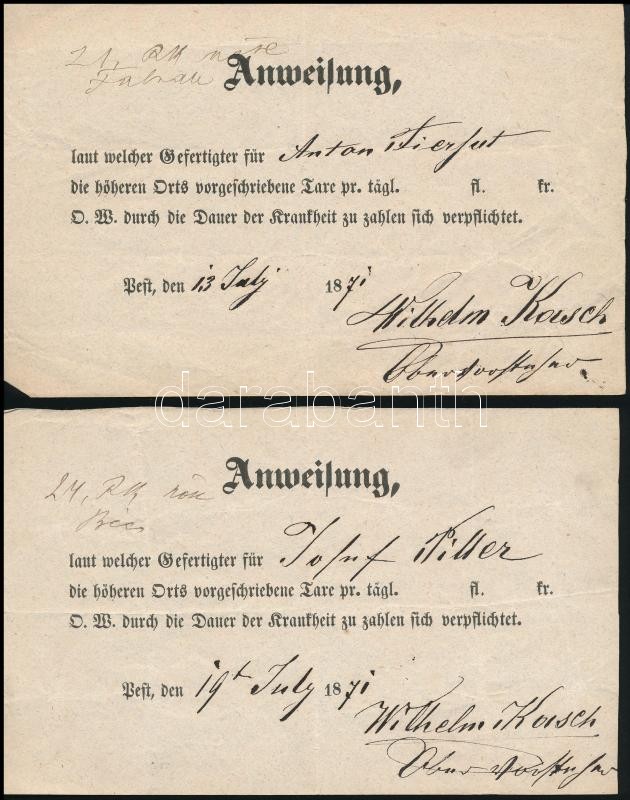 21, RK
Anweisung,
laut welcher Gefertigter für Anton Fierhut
die höheren Orts vorgeschriebene Taxe pr. tägl. fl. kr.
O. W. durch die Dauer der Krankheit zu zahlen sich verpflichtet.
Pest, den 13 July 1871
Wilhelm Kasch
Obervorsteher
darabanth
24, RK
Anweisung,
laut welcher Gefertigter für Josef Piller
die höheren Orts vorgeschriebene Taxe pr. tägl. fl. kr.
O. W. durch die Dauer der Krankheit zu zahlen sich verpflichtet.
Pest, den 19t July 1871
Wilhelm Kasch
Obervorsteher